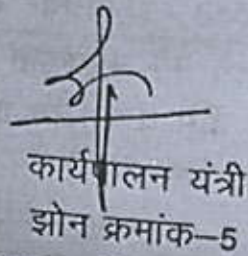 कार्यपालन यंत्री
झोन क्रमांक–5